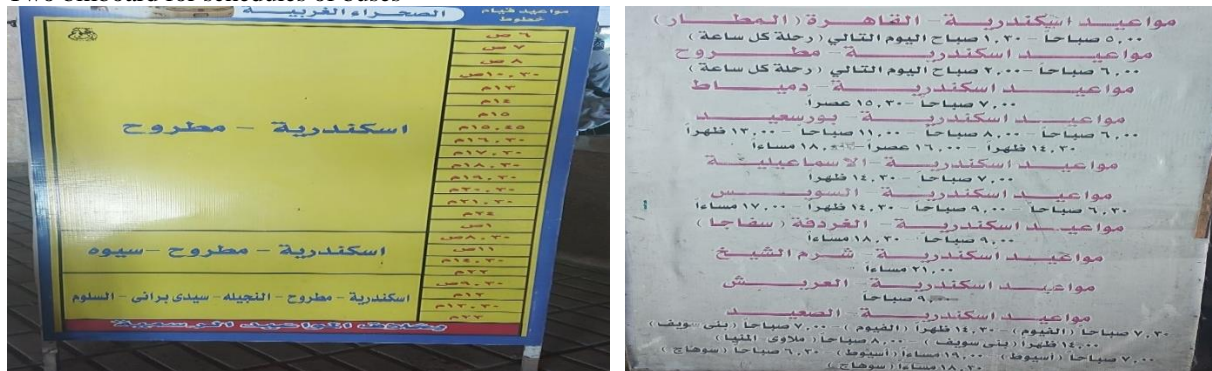 Two billboard for schedules of buses
مواعيد قيام خطوط الصحراء الغربية
٦ ص
٧ ص
٨ ص
١٠,٣٠ ص
١٢م
١٤م
١٥م
١٥,٤٥م
١٦,٣٠م
١٧,٣٠م
١٨,٣٠م
١٩,٣٠م
٢٠,٣٠م
٢١,٣٠م
٢٤م
١ص
اسكندرية - مطروح
٨,٣٠ص
١١ص
١٤,٣٠م
٢٢م
اسكندرية - مطروح - سيوه
٩,٣٠ص
١٢م
١٣,٣٠م
٢٣م
اسكندرية - مطروح - النجيله - سيدى برانى - السلوم
المواعيد الرسمية
مواعيد اسكندرية - القاهرة (المطار)
٥,٠٠ صباحاً - ١,٣٠ صباح اليوم التالي (رحلة كل ساعة)
مواعيد اسكندرية - مطروح
٦,٠٠ صباحاً - ٢,٠٠ صباح اليوم التالي (رحلة كل ساعة)
مواعيد اسكندرية - دمياط
٧,٠٠ صباحاً - ١٥,٣٠ عصراً
مواعيد اسكندرية - بورسعيد
٦,٠٠ صباحاً - ٨,٠٠ صباحاً - ١١,٠٠ صباحاً - ١٣,٠٠ ظهراً
١٤,٣٠ ظهراً - ١٦,٠٠ عصراً - ١٨,٠٠ مساءاً
مواعيد اسكندرية - الاسماعيلية
٧,٠٠ صباحاً - ١٤,٣٠ ظهراً
مواعيد اسكندرية - السويس
٦,٣٠ صباحاً - ٩,٠٠ صباحاً - ١٤,٣٠ ظهراً - ١٧,٠٠ مساءاً
مواعيد اسكندرية - الغردقة (سفاجا)
٩,٠٠ صباحاً - ١٨,٣٠ مساءاً
مواعيد اسكندرية - شرم الشيخ
٢١,٠٠ مساءاً
مواعيد اسكندرية - العريش
٩,٠٠ صباحاً
مواعيد اسكندرية - الصعيد
٧,٣٠ صباحاً (الفيوم) - ١٤,٣٠ ظهراً (الفيوم) - ٧,٠٠ صباحاً (بنى سويف)
١٤,٠٠ ظهراً (بنى سويف) - ٨,٠٠ صباحاً (ملاوى المنيا)
٧,٠٠ صباحاً (أسيوط) - ١٩,٠٠ مساءاً (أسيوط) - ٦,٣٠ صباحاً (سوهاج)
١٨,٣٠ مساءاً (سوهاج)